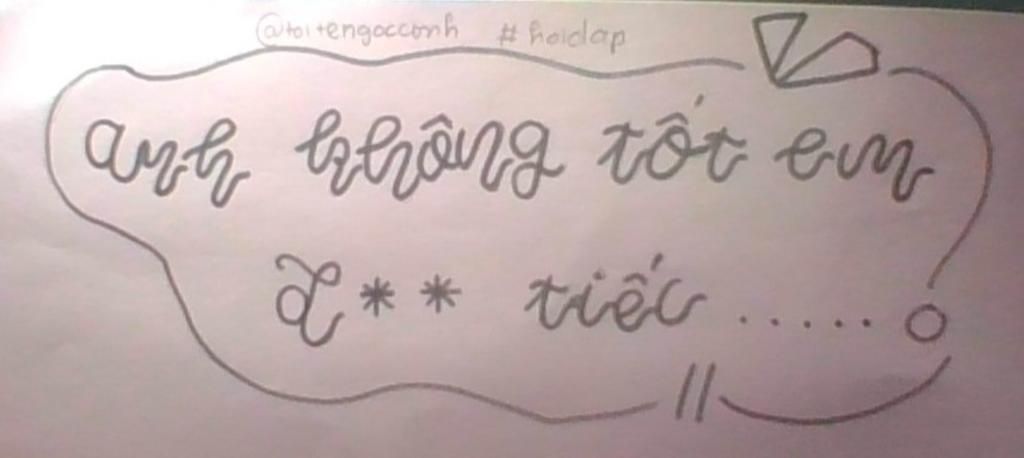 @toitengocconh #hoidap
anh không tốt em
Đ** tiếc.....